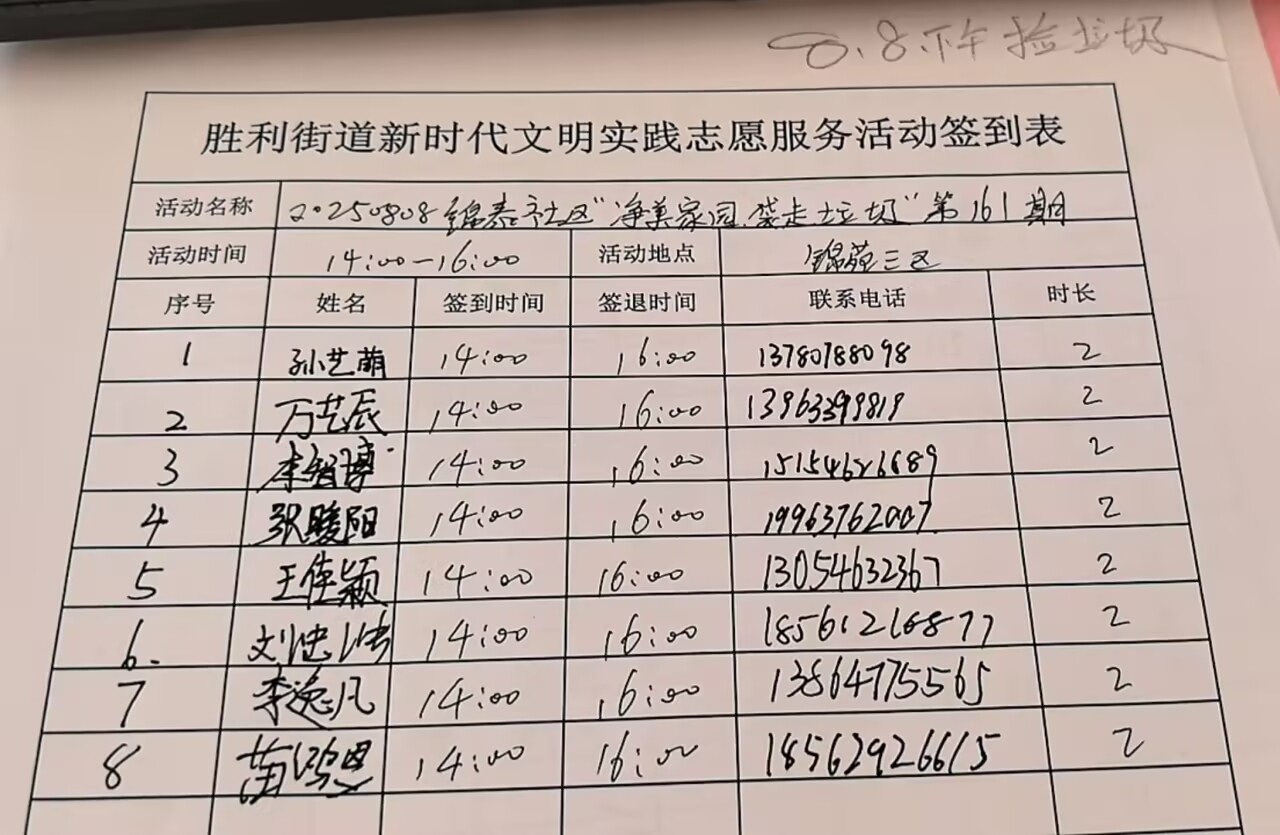 8.8.下午捡垃圾
胜利街道新时代文明实践志愿服务活动签到表
活动名称 20250808锦泰社区"净美家园.袋走垃圾"第161期
活动时间 14:00-16:00 活动地点 锦苑三区
序号 姓名 签到时间 签退时间 联系电话 时长
1 孙艺萌 14:00 16:00 13780788098 2
2 万艺辰 14:00 16:00 13963399819 2
3 李智博 14:00 16:00 15154626689 2
4 张暖阳 14:00 16:00 19963762007 2
5 王佳颖 14:00 16:00 13054632367 2
6. 刘忠 14:00 16:00 18561216877 2
7 李逸凡 14:00 16:00 13864775565 2
8 苗鸿恩 14:00 16:00 18562926615 2